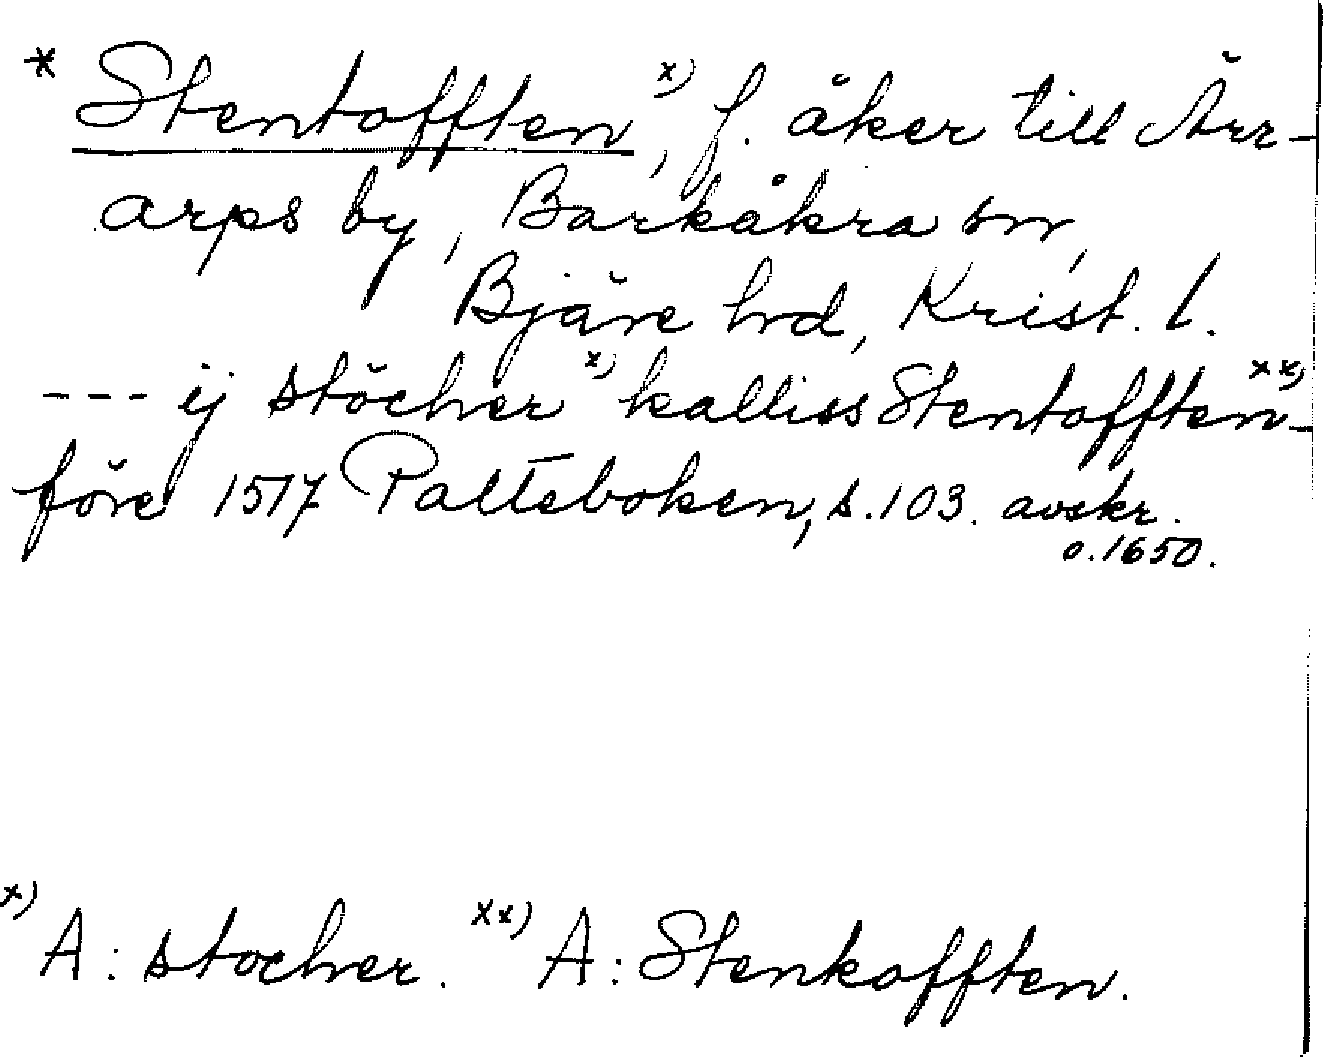 * Stentofften, x) f. åker till Ärr-
arps by, Barkåkra sn,
Bjäre hd, Krist. l.
--- ij stöcher x) kalliss Stentofften xx) -
före 1517 Palteboken, s. 103. avskr.
o. 1650.
x) A: stocher. xx) A: Stenkofften.